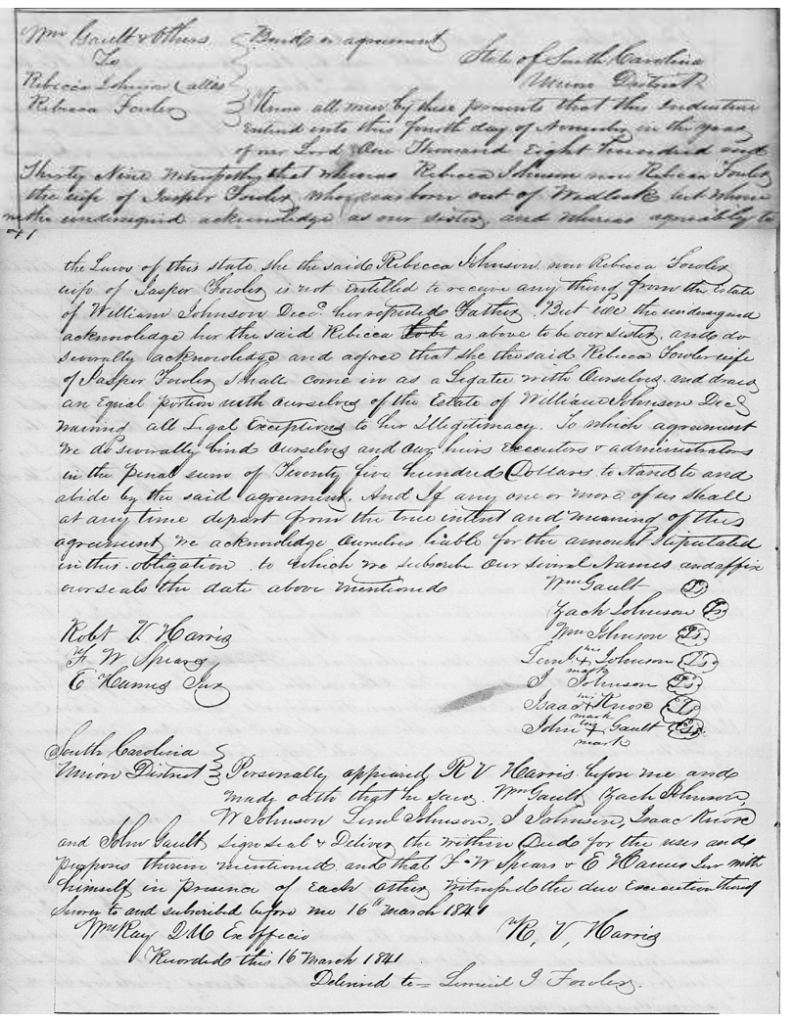 Wm Gault & Others } Bond or agreement
To
State of South Carolina
Union District
Rebecca Johnson alias
Rebecca Fowler } Know all men by these presents that this Indenture
Entered into this fourth day of November in the year
of our Lord One Thousand Eight hundred and
Thirty Nine Witnesseth that whereas Rebecca Johnson now Rebecca Fowler
the wife of Jasper Fowler, who was born out of Wedlock but whom
we the undersigned acknowledge as our sister, and whereas agreeably to
71
the Laws of this state she the said Rebecca Johnson now Rebecca Fowler
wife of Jasper Fowler is not entitled to receive any thing from the estate
of William Johnson Decd. her reputed Father. But we the undersigned
acknowledge her the said Rebecca to be a above to be our sister, and do
severally acknowledge and agree that she the said Rebecca Fowler wife
of Jasper Fowler Shall come in as a Legatee with Ourselves and draw
an Equal portion with ourselves of the Estate of William Johnson Decd
waiving all Legal Exceptions to her Illegitimacy. To which agreement
We do severally bind Ourselves and Our heirs Executors & administrators
in the penal sum of Twenty five hundred Dollars to stand to and
abide by the said agreement. And If any one or more of us Shall
at any time depart from the true intent and meaning of this
agreement we acknowledge Ourselves liable for the amount stipulated
in this obligation to which we subscribe Our several Names and affix
our seals the date above mentioned
Wm Gault Ls
Zach Johnson Ls
Robt V. Harris
Wm Johnson Ls
F W Spears
Leml. his x mark Johnson Ls
E Hames Jur
J Johnson Ls
Isaac his x mark Knox Ls
John his x mark Gault Ls
South Carolina
Union District } Personally appeared R V Harris before me and
made oath that he saw Wm Gault, Zach Johnson,
W Johnson Leml Johnson, J Johnson, Isaac Knox
and John Gault sign seal & Deliver the within Deed for the uses and
purposes therein mentioned and that F W Spears & E Hames Jur with
himself in presence of Each other Witnessed the due Execution thereof
Sworn to and subscribed before me 16th march 1841
Wm Ray Q U Ex officio
R. V. Harris
Recorded this 16 March 1841
Delivered to = Lemuel J Fowler.